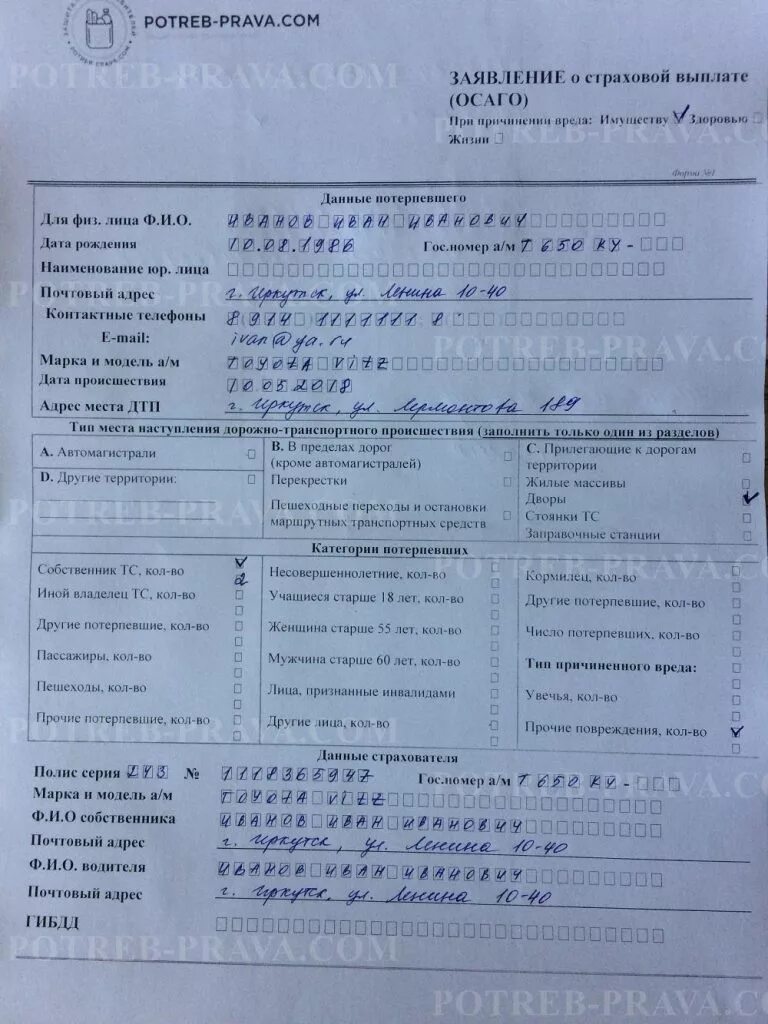 POTREB-PRAVA.COM
ЗАЯВЛЕНИЕ о страховой выплате
(ОСАГО)
При причинении вреда: Имуществу ✓ Здоровью □
Жизни □
Форма №1
Данные потерпевшего
Для физ. лица Ф.И.О. ИВАНОВ ИВАН ИВАНОВИЧ
Дата рождения 10.08.1986 Гос.номер а/м Т 650 КУ -
Наименование юр. лица
Почтовый адрес г. Иркутск, ул. Ленина 10-40
Контактные телефоны 8914 1111111 8
E-mail: ivan@ya.ru
Марка и модель а/м TOYOTA VITZ
Дата происшествия 10.05.2018
Адрес места ДТП г. Иркутск, ул. Лермонтова 189
Тип места наступления дорожно-транспортного происшествия (заполнить только один из разделов)
A. Автомагистрали □
D. Другие территории: □
B. В пределах дорог
(кроме автомагистралей) □
Перекрестки □
Пешеходные переходы и остановки
маршрутных транспортных средств □
C. Прилегающие к дорогам
территории □
Жилые массивы □
Дворы ✓
Стоянки ТС □
Заправочные станции □
Категории потерпевших
Собственник ТС, кол-во ✓
2
Иной владелец ТС, кол-во
Другие потерпевшие, кол-во
Пассажиры, кол-во
Пешеходы, кол-во
Прочие потерпевшие, кол-во
Несовершеннолетние, кол-во
Учащиеся старше 18 лет, кол-во
Женщина старше 55 лет, кол-во
Мужчина старше 60 лет, кол-во
Лица, признанные инвалидами
Другие лица, кол-во
Кормилец, кол-во
Другие потерпевшие, кол-во
Число потерпевших, кол-во
Тип причиненного вреда:
Увечья, кол-во
Прочие повреждения, кол-во ✓
Данные страхователя
Полис серия № 1118365947 Гос.номер а/м Т 650 КУ -
Марка и модель а/м TOYOTA VITZ
Ф.И.О собственника ИВАНОВ ИВАН ИВАНОВИЧ
Почтовый адрес г. Иркутск, ул. Ленина 10-40
Ф.И.О. водителя ИВАНОВ ИВАН ИВАНОВИЧ
Почтовый адрес г. Иркутск, ул. Ленина 10-40
ГИБДД